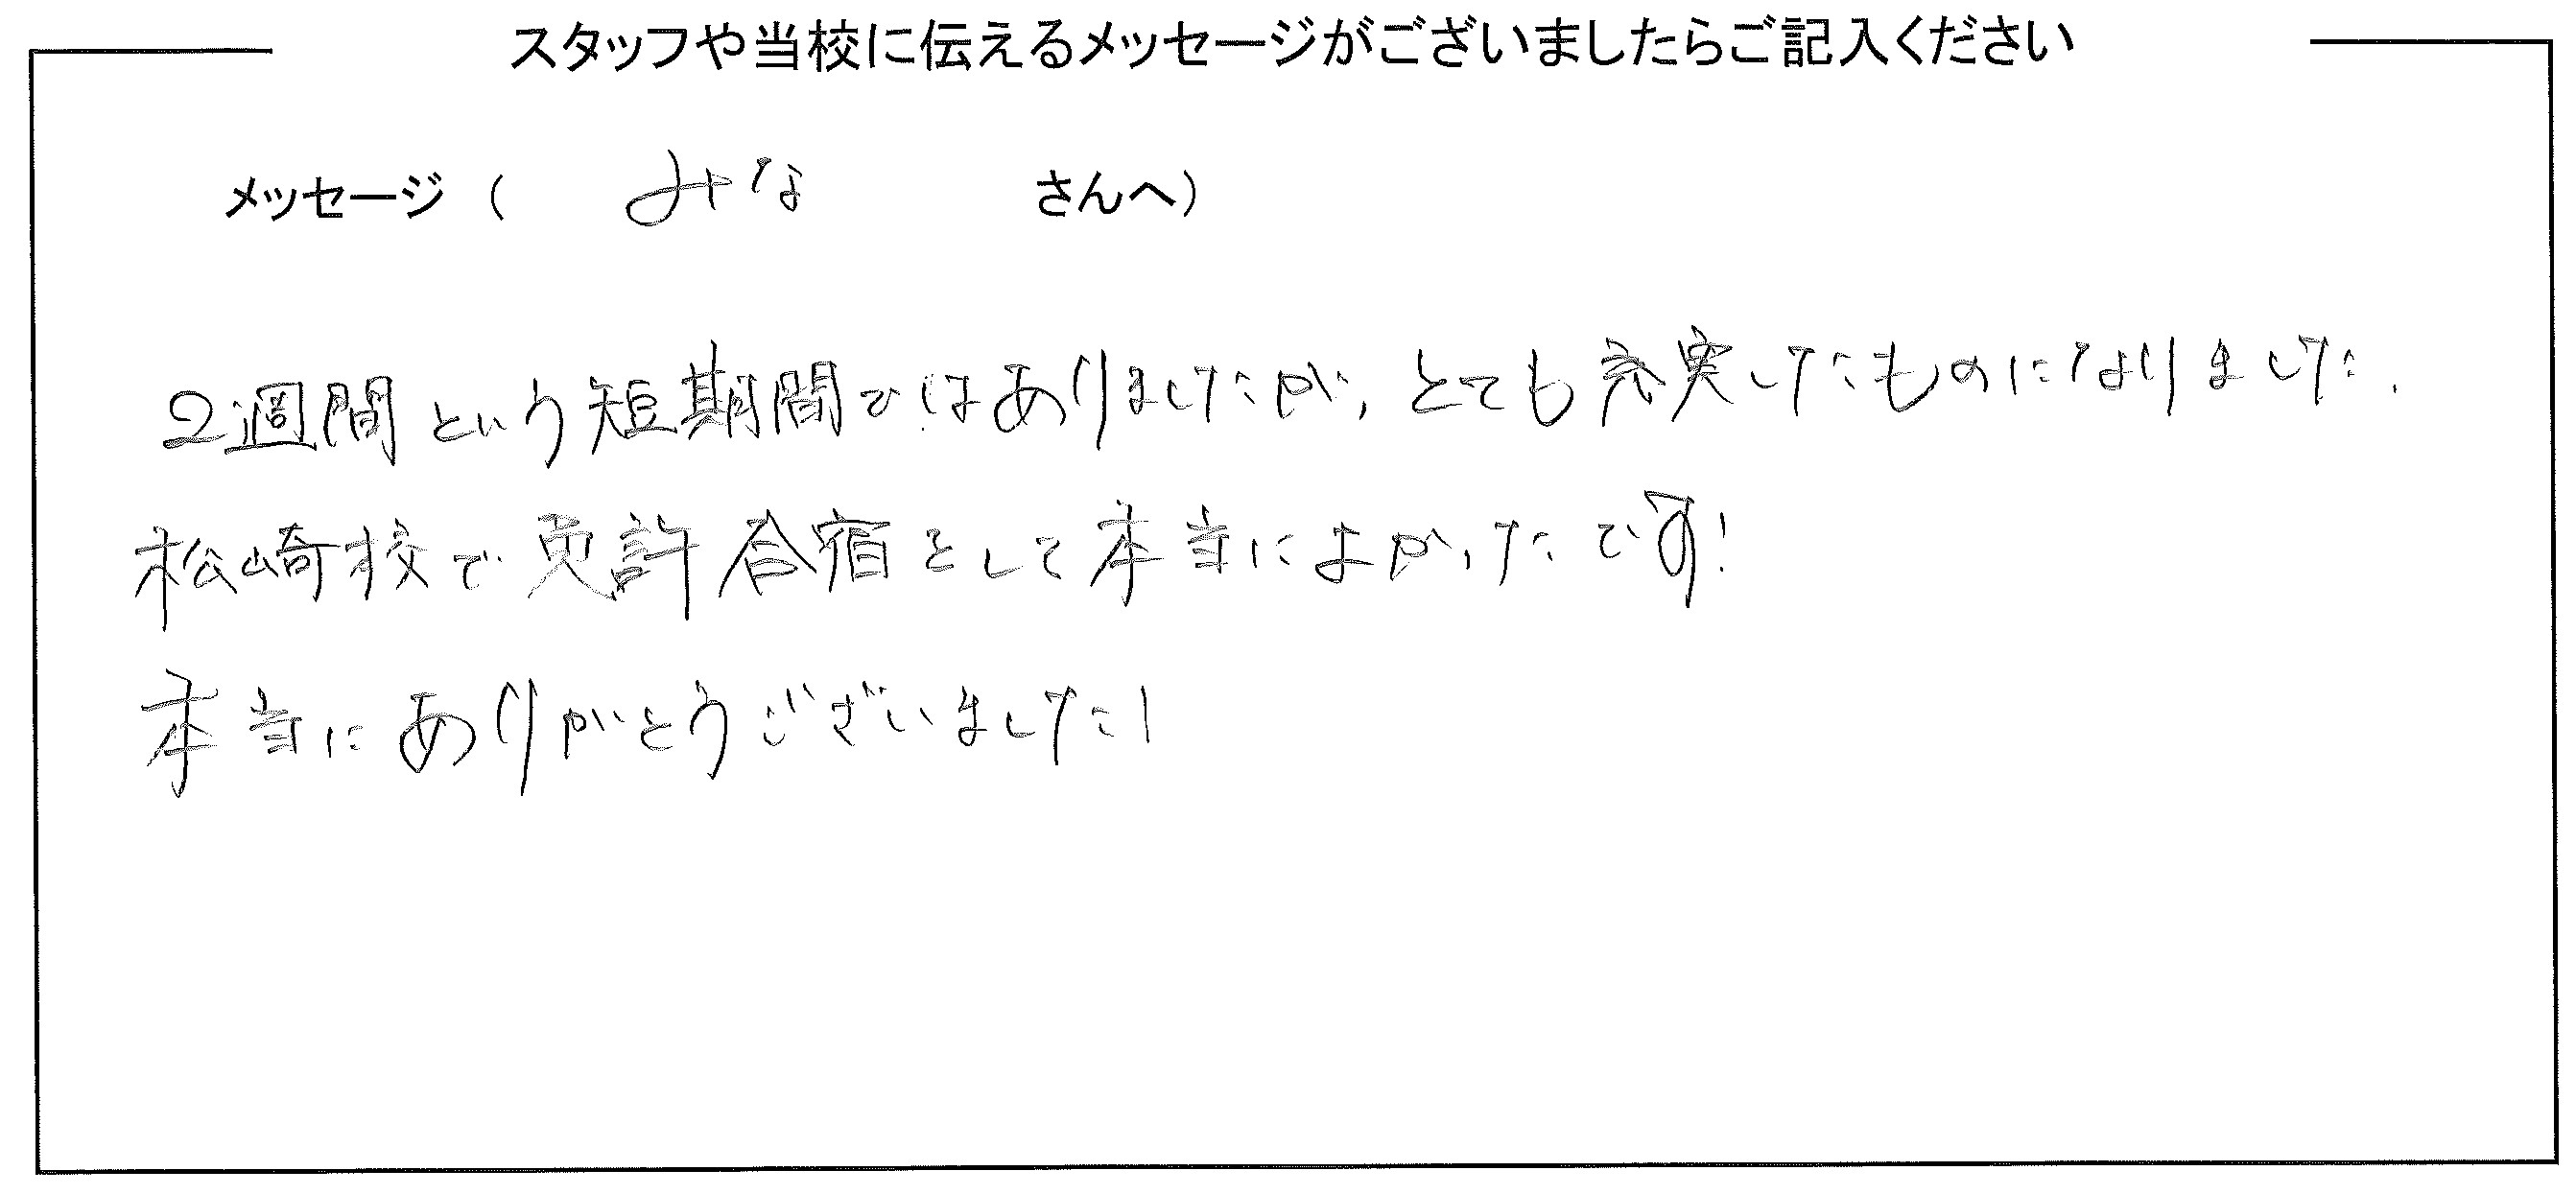 スタッフや当校に伝えるメッセージがございましたらご記入ください
メッセージ（　みな　さんへ）
2週間という短期間ではありましたが、とても充実したものになりました.
松崎校で免許合宿をして本当によかったです!
本当にありがとうございました!